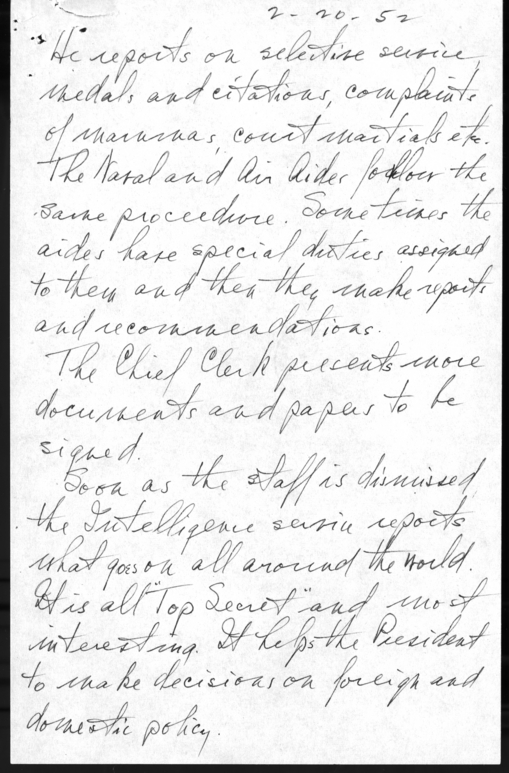 2-20-52
He reports on selective service,
medals and citations, complaints
of mammas, court martials etc.
The Naval and Air Aides follow the
same proceedure. Sometimes the
aides have special duties assigned
to them and then they make reports
and recommendations.
The Chief Clerk presents more
documents and papers to be
signed.
Soon as the staff is dismissed
the Intelligence service reports
what goes on all around the world.
It is all "Top Secret" and most
interesting. It helps the President
to make decisions on foreign and
domestic policy.